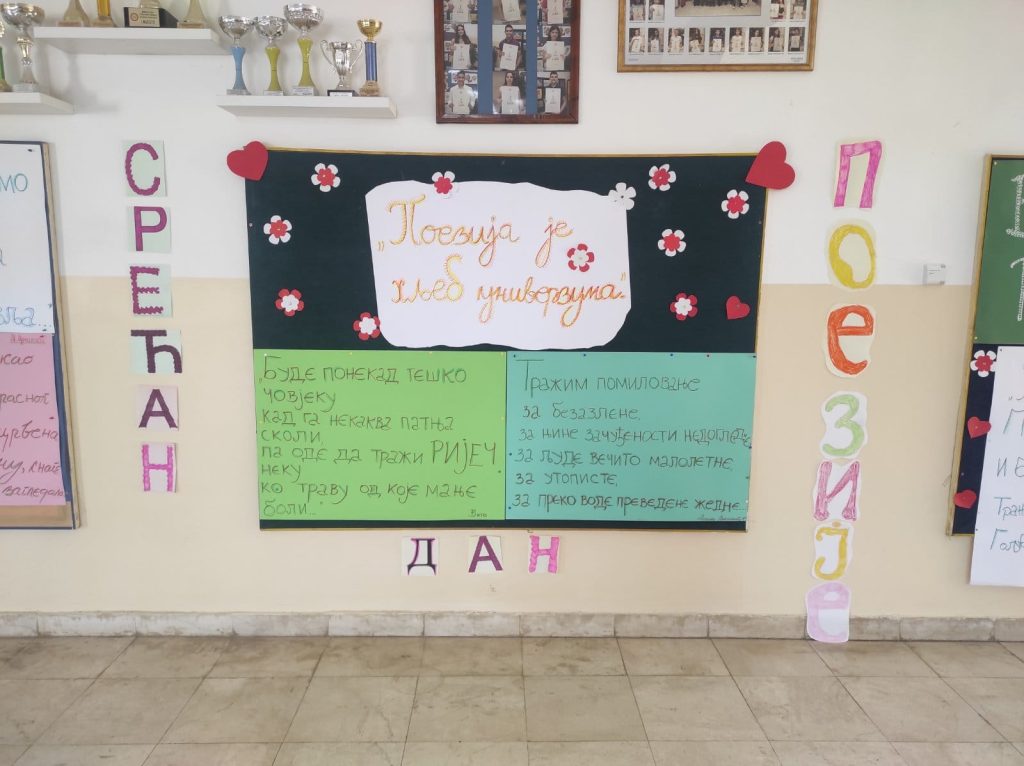 СРЕЋАН
„Поезија је
хљеб универзума.”
„Буде понекад тешко
човјеку
кад га некаква патња
сколи,
па оде да тражи РИЈЕЧ
неку
ко траву од које мање
боли...
Тражим помиловање
за безазлене,
за њине зачуђености недоглед
за људе вечито малолетне,
за утописте,
за преко воде преведене жедне...
ДАН
ПоеЗИје
мо
ља...
као
црвена